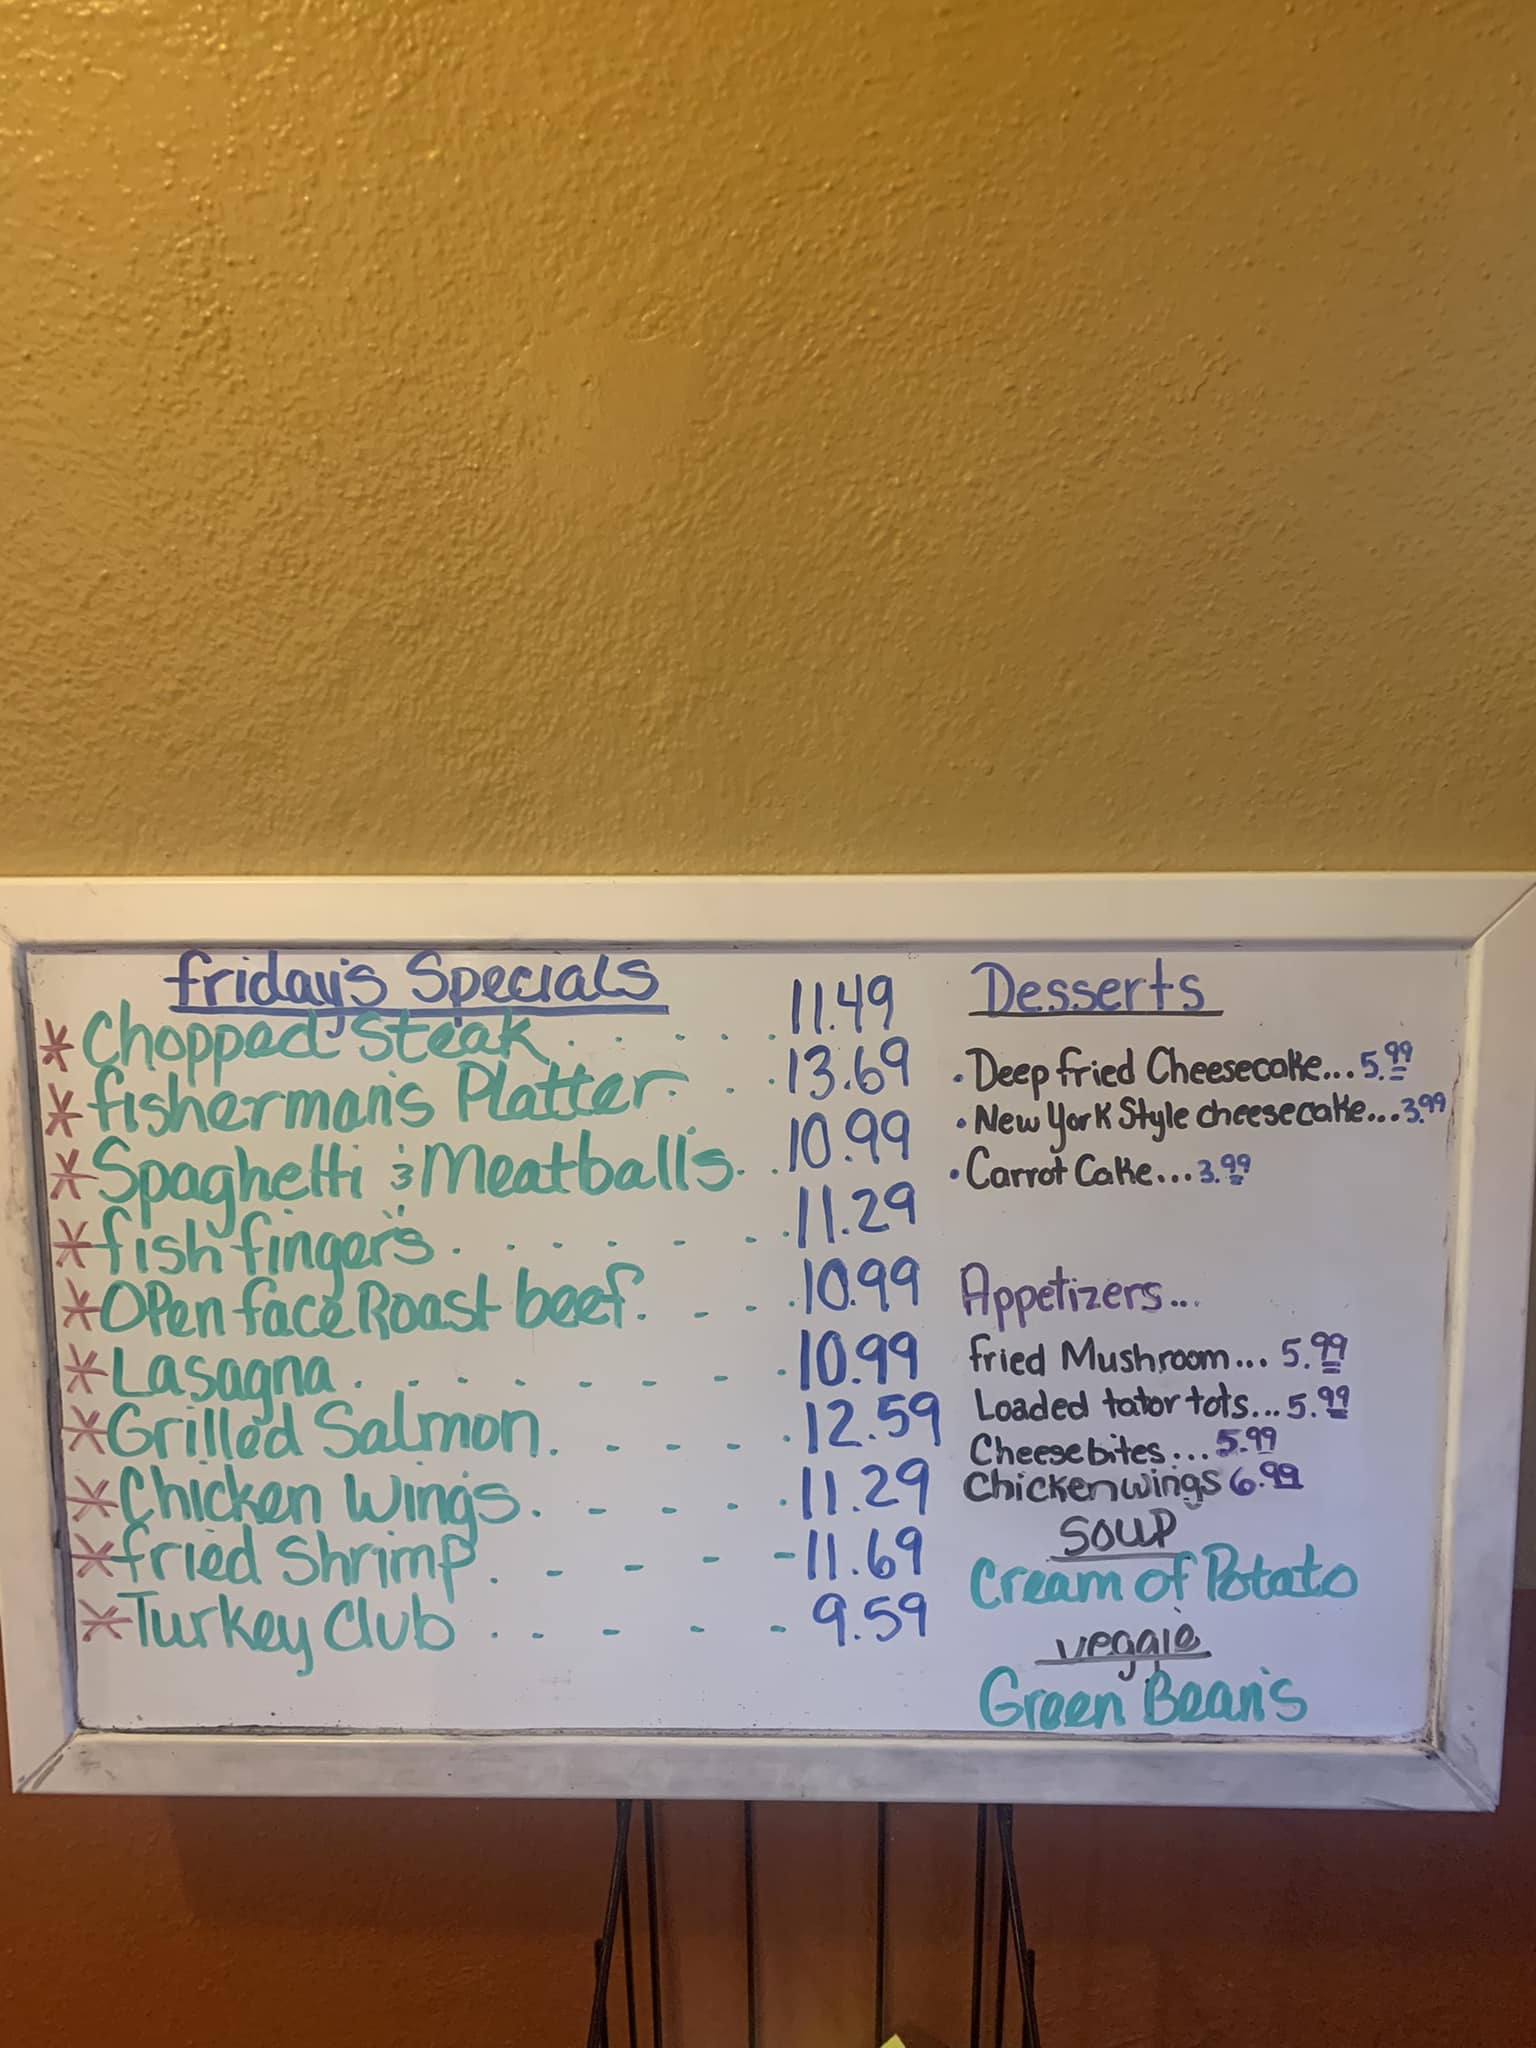 friday's Specials
* Chopped Steak . . . . . 11.49
* fisherman's Platter . . . 13.69
* Spaghetti & Meatballs . . 10.99
* fish fingers . . . . . . 11.29
* Open face Roast beef . - - . 10.99
* Lasagna . . . - - - - . 10.99
* Grilled Salmon . - - - - . 12.59
* Chicken Wings . - - - - . 11.29
* fried Shrimp . - - - - 11.69
* Turkey Club . . - - - - 9.59
Desserts
• Deep fried Cheesecake... 5.99
• New York Style cheesecake... 3.99
• Carrot Cake... 3.99
Appetizers...
fried Mushroom... 5.99
Loaded tator tots... 5.99
Cheese bites... 5.99
Chicken wings 6.99
SOUP
Cream of Potato
veggie
Green Bean's